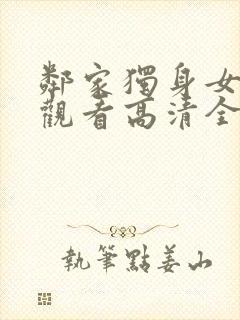 鄰家獨身女
觀看高清全
執筆點姜山